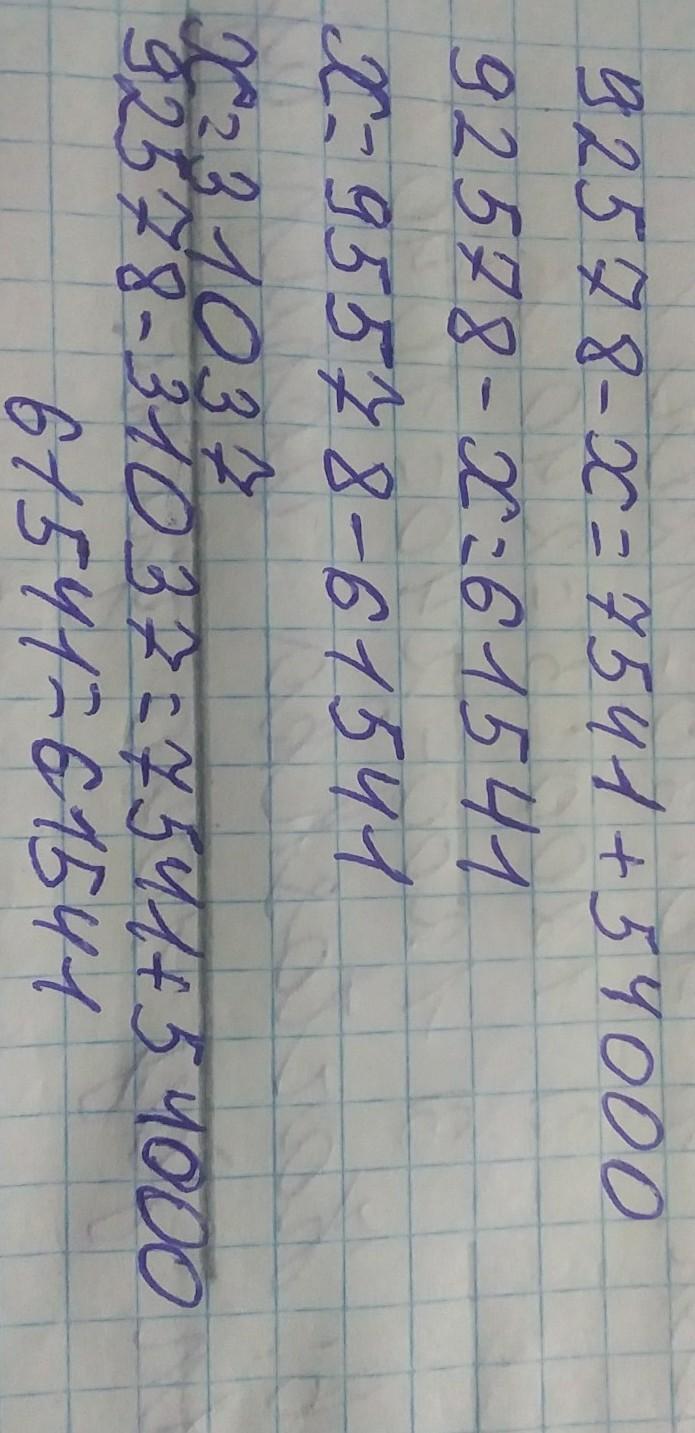 92578-x=7541+54000
92578-x=61541
x=95578-61541
x=31037
92578-31037=7541+54000
61541=61541